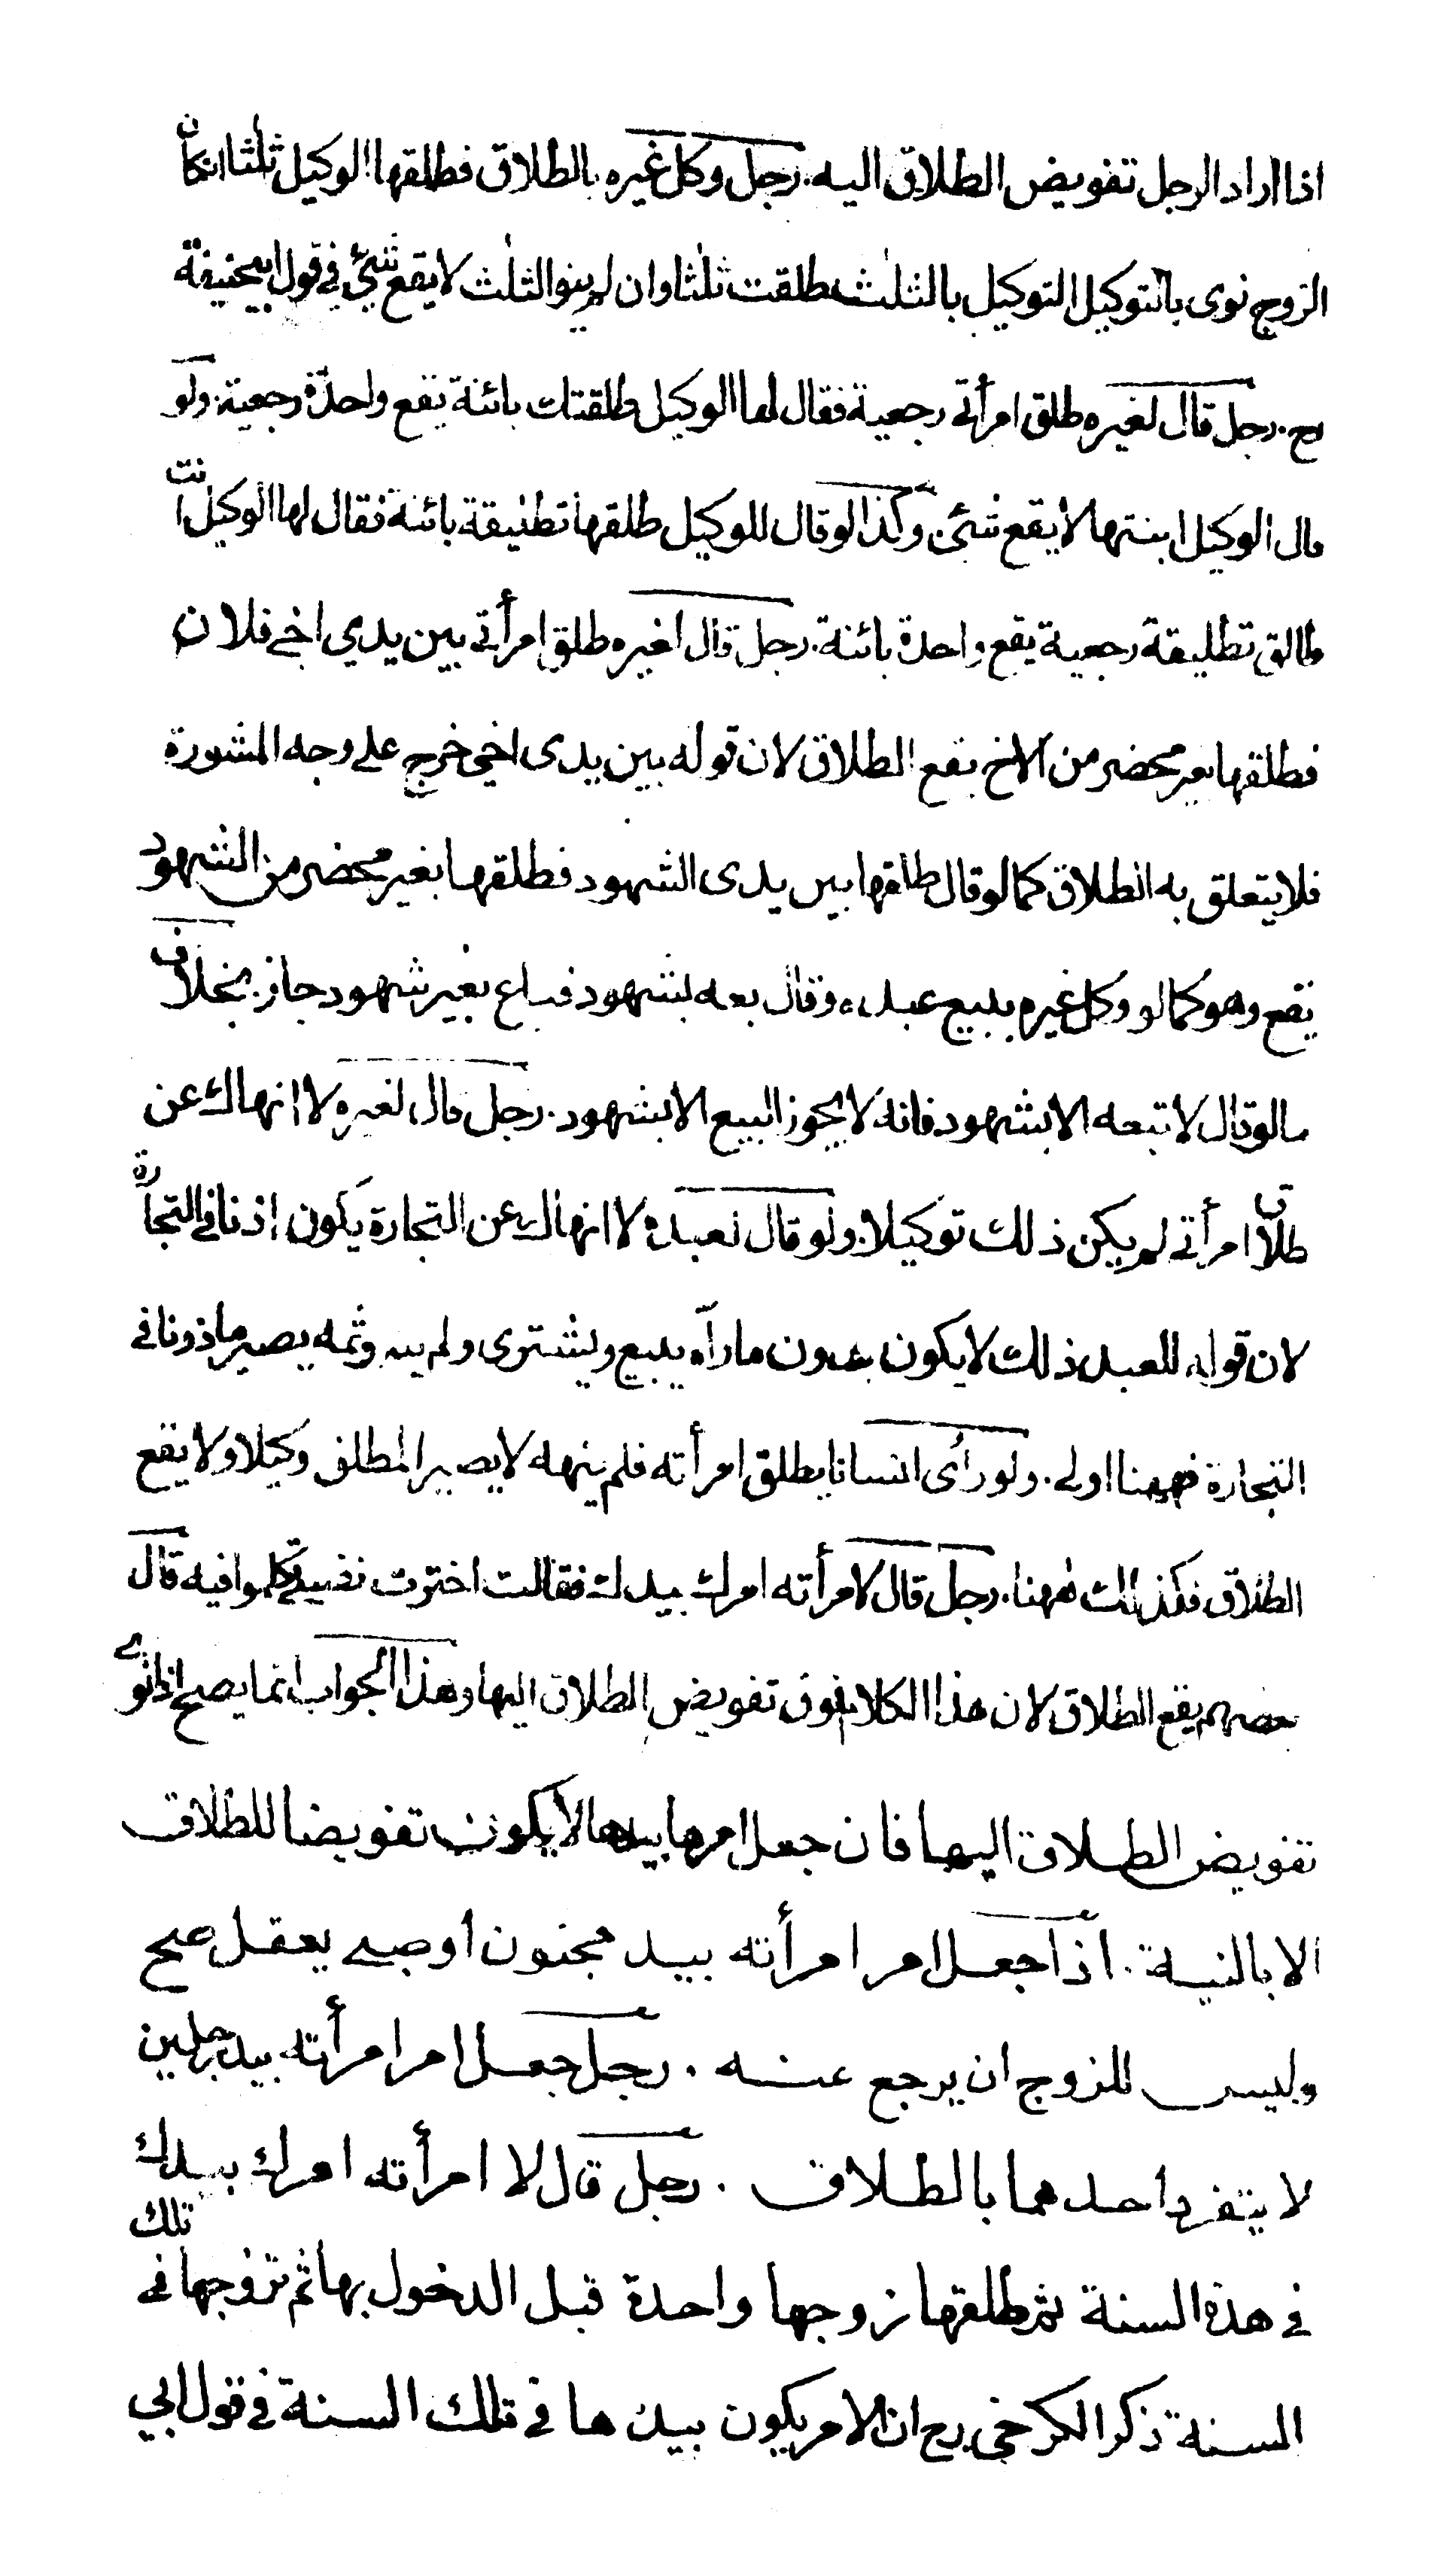 اذا اراد الرجل تفويض الطلاق اليه . رجل وكل غيره بالطلاق فطلقها الوكيل ثلثا ان كان
الزوج نوى بالتوكيل التوكيل بالثلث طلقت ثلثا وان لم ينو الثلث لا يقع شئ في قول ابيحنيفة
رح . رجل قال لغيره طلق امرأتي رجعية فقال لها الوكيل طلقتك بائنة يقع واحدة رجعية . ولو
قال الوكيل ابنتها لا يقع شئ وكذا لو قال للوكيل طلقها تطليقة بائنة فقال لها الوكيل انت
طالق تطليقة رجعية يقع واحدة بائنة . رجل قال لغيره طلق امرأتي بين يدي اخي فلان
فطلقها بغير محضر من الاخ يقع الطلاق لان قوله بين يدى اخي خرج على وجه المشورة
فلا يتعلق به الطلاق كما لو قال طلقها بين يدى الشهود فطلقها بغير محضر من الشهود
يقع وهو كما لو وكل غيره ببيع عبده وقال بعه بشهود فباع بغير شهود جاز . بخلاف
ما لو قال لا تبعه الا بشهود فانه لا يجوز البيع الا بشهود . رجل قال لغيره لا انهاك عن
طلاق امرأتي لم يكن ذلك توكيلا . ولو قال لعبده لا انهاك عن التجارة يكون اذنا في التجارة
لان قوله للعبد ذلك لا يكون بدون ما رآه يبيع ويشترى ولم ينهه وثمه يصير ماذونا في
التجارة فههنا اولى . ولو رأى انسانا يطلق امرأته فلم ينهه لا يصير المطلق وكيلا ولا يقع
الطلاق فكذلك ههنا . رجل قال لامرأته امرك بيدك فقالت اخترت نفسي تكلموا فيه قال
بعضهم يقع الطلاق لان هذا الكلام فوق تفويض الطلاق اليها وهذا الجواب انما يصح اذا نوى
تفويض الطلاق اليها فان جعل امرها بيدها لا يكون تفويضا للطلاق
الا بالنية . اذا جعل امر امرأته بيد مجنون او صبي يعقل صح
وليس للزوج ان يرجع عنه . رجل جعل امر امرأته بيد رجلين
لا يتفرد احدهما بالطلاق . رجل قال لا امرأته امرك بيدك
في هذه السنة ثم طلقها زوجها واحدة قبل الدخول بها ثم تزوجها في تلك
السنة ذكر الكرخي رح ان الامر يكون بيدها في تلك السنة في قول ابي